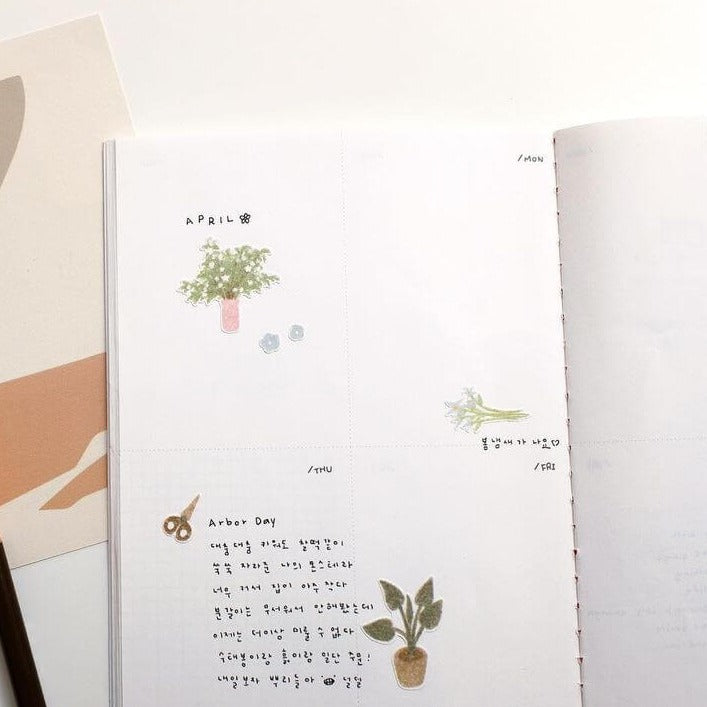 /MON
APRIL
봄냄새가 나요♡
/THU
/FRI
Arbor Day
대충대충 키워도 찰떡같이
쑥쑥 자라준 나의 몬스테라
너무 커서 집이 아주 작다
분갈이는 무서워서 안해봤는데
이제는 더이상 미룰 수 없다
수태봉이랑 흙이랑 일단 주문!
내일보자 뿌리들아 덜덜